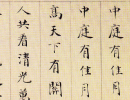 中庭有佳月
中庭有佳月
高天下有開
人共看清光萬